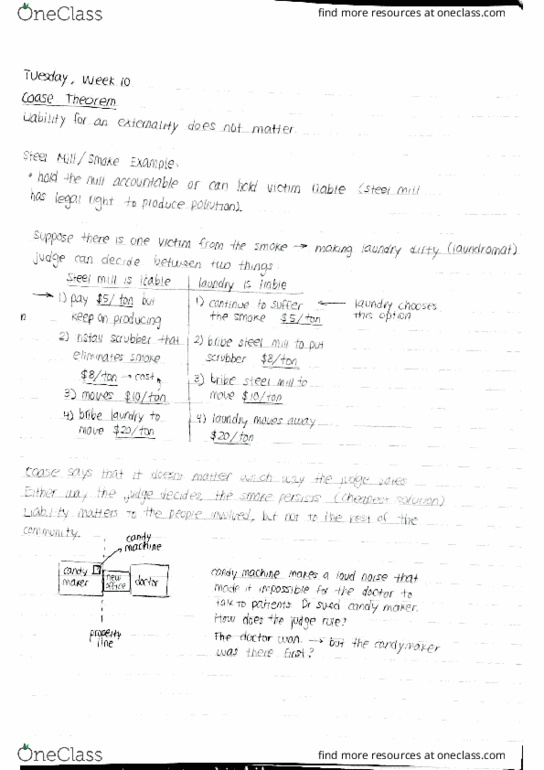 OneClass
find more resources at oneclass.com
Tuesday, Week 10
Coase Theorem
Liability for an externality does not matter.
Steel Mill/Smoke Example:
• hold the mill accountable or can hold victim liable (steel mill
has legal right to produce pollution).
Suppose there is one victim from the smoke → making laundry dirty (laundromat)
judge can decide between two things:
Steel mill is liable
laundry is liable
→ 1) pay $5/ton but
keep on producing
1) continue to suffer
the smoke $5/ton
← laundry chooses
this option
n
2) install scrubber that
eliminates smoke
$8/ton → cost
2) bribe steel mill to put
scrubber $8/ton
3) moves $10/ton
3) bribe steel mill to
move $10/ton
4) bribe laundry to
move $20/ton
4) laundry moves away
$20/ton
Coase says that it doesn't matter which way the judge
Either way the judge decides, the smoke persists (cheapest solution)
Liability matters to the people involved, but not to the rest of the
community.
candy
machine
candy
maker
new
office
doctor
property
line
candy machine makes a loud noise that
made it impossible for the doctor to
talk to patients. Dr sued candy maker.
How does the judge rule?
The doctor won. → but the candymaker
was there first?
OneClass
find more resources at oneclass.com